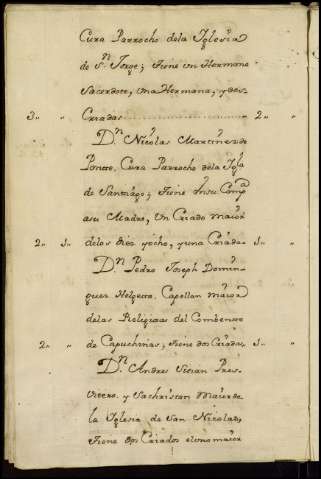 Cura Parrocho dela Yglesia
de Sn. Jorge; tiene un Hermano
Sacerdote, una Hermana, y dos
3 " " Criadas " 2 " "
Dn. Nicolas Martines de
Ponce, Cura Parrocho dela Ygla
de Santiago; tiene en su Compa
asu Madre, un Criado maior
2 " 1 " delos dies yocho, y una Criada " 1 " "
Dn. Pedro Joseph Domin-
gues, Capellan maior
delas Religiosas del Combento
2 " " de Capuchinas; tiene dos Criadas, 1 " "
Dn. Andres Pres-
vitero, y Sachristan Maior de
la Yglesia de San Nicolas,
tiene dos Criados eluno maior